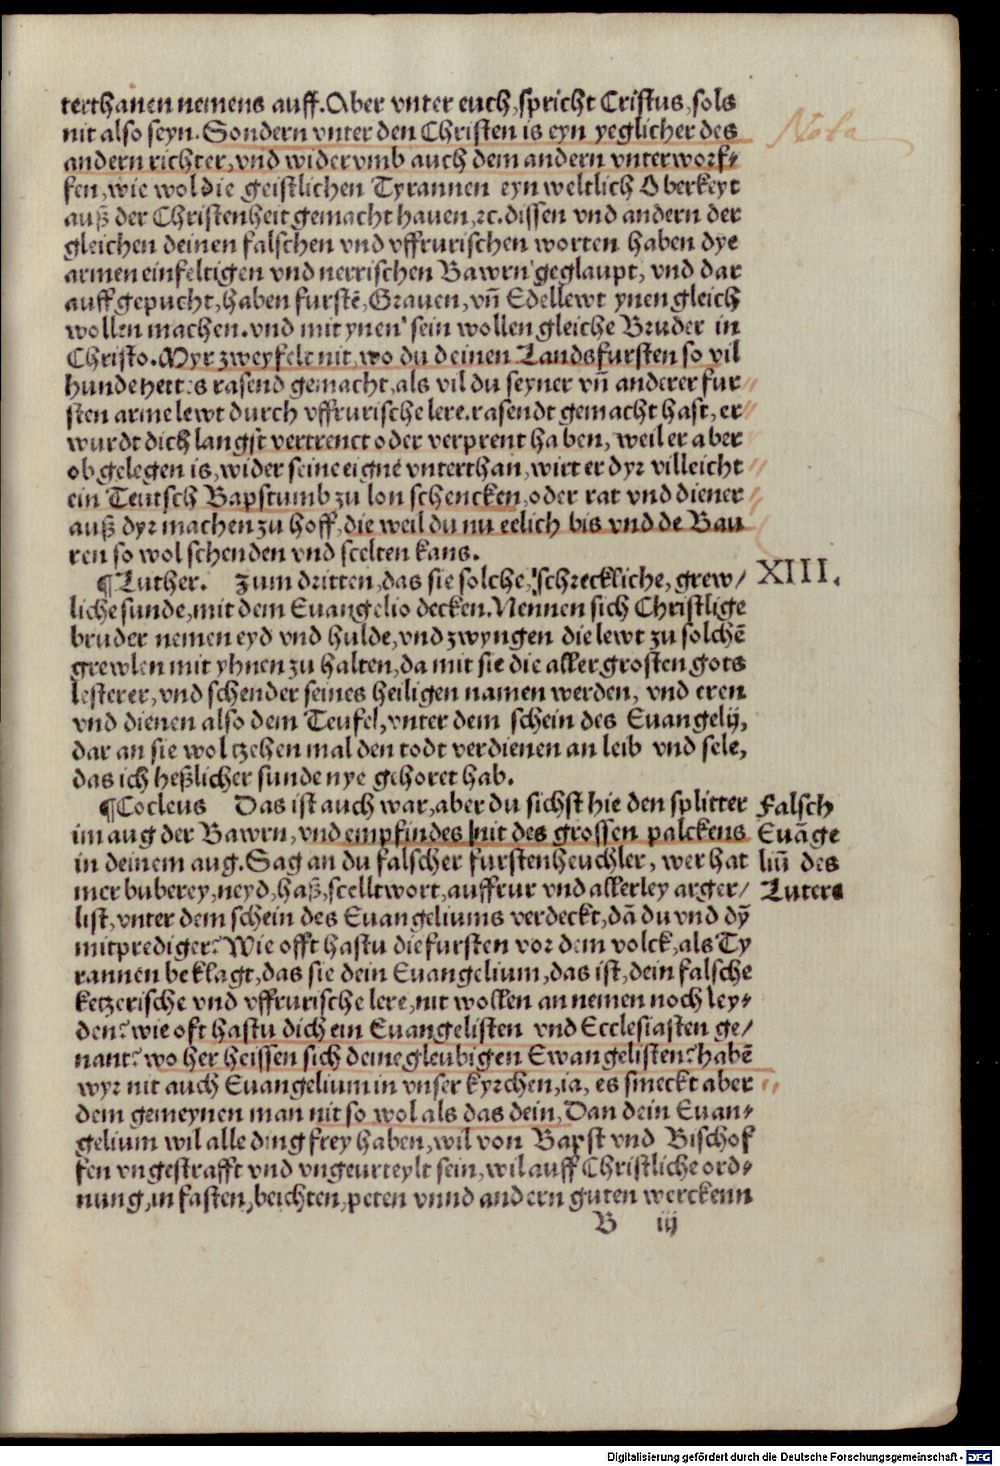 terthanen nemens auff. Aber vnter euch, spricht Cristus, sols
nit also seyn. Sondern vnter den Christen is eyn yeglicher des
andern richter, vnd widervmb auch dem andern vnterworf-
fen, wie wol die geistlichen Tyrannen eyn weltlich Oberkeyt
auß der Christenheit gemacht haven, ⁊c. dissen vnd andern der
gleichen deinen falschen vnd vffrurischen worten haben dye
armen einfeltigen vnd nerrischen Bawrn geglaupt, vnd dar
auff gepucht, haben furstē, Graven, vñ Edellewt ynen gleich
wollen machen. vnd mit ynen sein wollen gleiche Bruder in
Christo. Myr zweyfelt nit, wo du deinen Landsfursten so vil
hunde hettes rasend gemacht, als vil du seyner vñ anderer fur
sten arme lewt durch vffrurische lere. rasendt gemacht hast, er
wurdt dich langst vertrenct oder verprent haben, weil er aber
ob gelegen is, wider seine eigne vnterthan, wirt er dyr villeicht
ein Teutsch Bapstumb zu lon schencken, oder rat vnd diener
auß dyr machen zu hoff, die weil du nu eelich bis vnd de Bau
ren so wol schenden vnd scelten kans.
Nota
¶Luther. Zum dritten, das sie solche, schreckliche, grew/
liche sunde, mit dem Euangelio decken. Nennen sich Christlige
bruder nemen eyd vnd hulde, vnd zwyngen die lewt zu solchē
grewlen mit yhnen zu halten, da mit sie die aller grosten gots
lesterer, vnd schender seines heiligen namen werden, vnd eren
vnd dienen also dem Teufel, vnter dem schein des Euangelij,
dar an sie wol tzehen mal den todt verdienen an leib vnd sele,
das ich heßlicher sunde nye gehoret hab.
XIII.
¶Cocleus Das ist auch war, aber du sichst hie den splitter
im aug der Bawrn, vnd empfindes nit des grossen palckens
in deinem aug. Sag an du falscher furstenheuchler, wer hat
mer buberey, neyd, haß, scelltwort, auffrur vnd allerley arger/
list, vnter dem schein des Euangeliums verdeckt, dā du vnd dȳ
mitprediger? Wie offt hastu die fursten vor dem volck, als Ty
rannen beklagt, das sie dein Euangelium, das ist, dein falsche
ketzerische vnd vffrurische lere, nit wollen an nemen noch ley-
den? wie oft hastu dich ein Euangelisten vnd Ecclesiasten ge/
nant? wo her heissen sich deine gleubigen Ewangelisten? habē
wyr nit auch Euangelium in vnser kyrchen, ia, es smeckt aber
dem gemeynen man nit so wol als das dein, Dan dein Euan-
gelium wil alle ding frey haben, wil von Bapst vnd Bischof
fen vngestrafft vnd vngeurteylt sein, wil auff Christliche ord-
nung, in fasten, beichten, peten vnnd andern guten werckenn
Falsch
Euāge
liū des
Luters
B iij
Digitalisierung gefördert durch die Deutsche Forschungsgemeinschaft - DFG